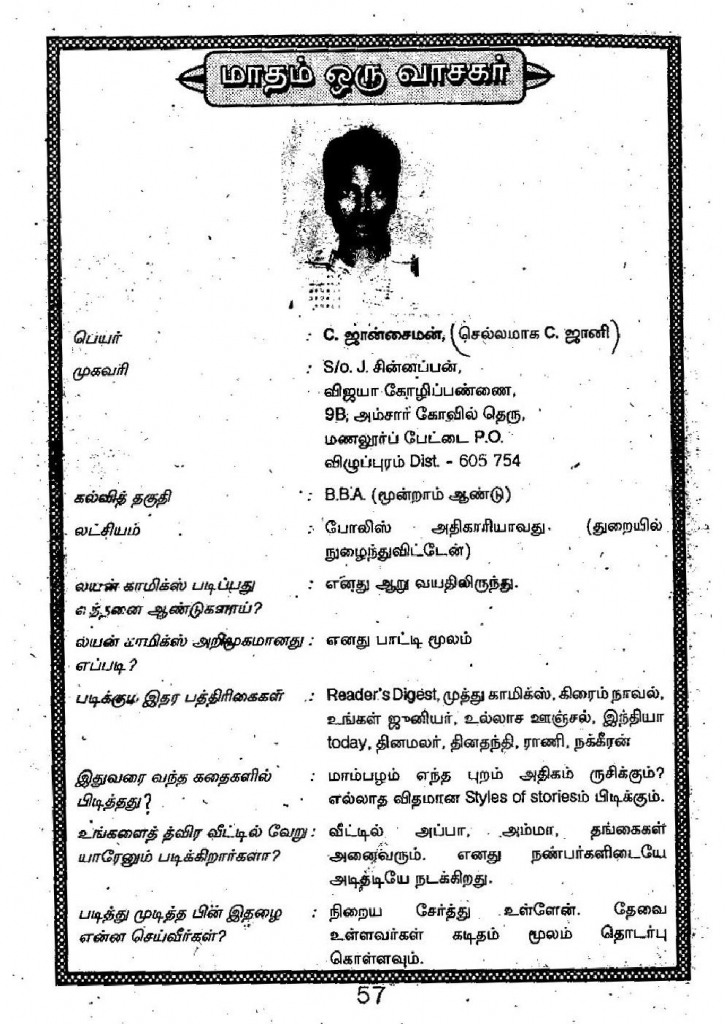 மாதம் ஒரு வாசகர்
பெயர் : C. ஜான்சைமன், (செல்லமாக C. ஜானி)
முகவரி : S/o. J. சின்னப்பன்,
விஜயா கோழிப்பண்ணை,
9B, அம்சார் கோவில் தெரு,
மணலூர்ப் பேட்டை P.O.
விழுப்புரம் Dist. - 605 754
கல்வித் தகுதி : B.B.A. (மூன்றாம் ஆண்டு)
லட்சியம் : போலிஸ் அதிகாரியாவது. (துறையில்
நுழைந்துவிட்டேன்)
லயன் காமிக்ஸ் படிப்பது : எனது ஆறு வயதிலிருந்து.
எத்தனை ஆண்டுகளாய்?
லயன் காமிக்ஸ் அறிமுகமானது : எனது பாட்டி மூலம்
எப்படி?
படிக்கும் இதர பத்திரிகைகள் : Reader's Digest, முத்து காமிக்ஸ், கிரைம் நாவல்,
உங்கள் ஜுனியர், உல்லாச ஊஞ்சல், இந்தியா
today, தினமலர், தினதந்தி, ராணி, நக்கீரன்
இதுவரை வந்த கதைகளில் : மாம்பழம் எந்த புறம் அதிகம் ருசிக்கும்?
பிடித்தது? எல்லாத விதமான Styles of storiesம் பிடிக்கும்.
உங்களைத் த்விர வீட்டில் வேறு : வீட்டில் அப்பா, அம்மா, தங்கைகள்
யாரேனும் படிக்கிறார்களா? அனைவரும். எனது நண்பர்களிடையே
அடித்டியே நடக்கிறது.
படித்து முடித்த பின் இதழை : நிறைய சேர்த்து உள்ளேன். தேவை
என்ன செய்வீர்கள்? உள்ளவர்கள் கடிதம் மூலம் தொடர்பு
கொள்ளவும்.
57